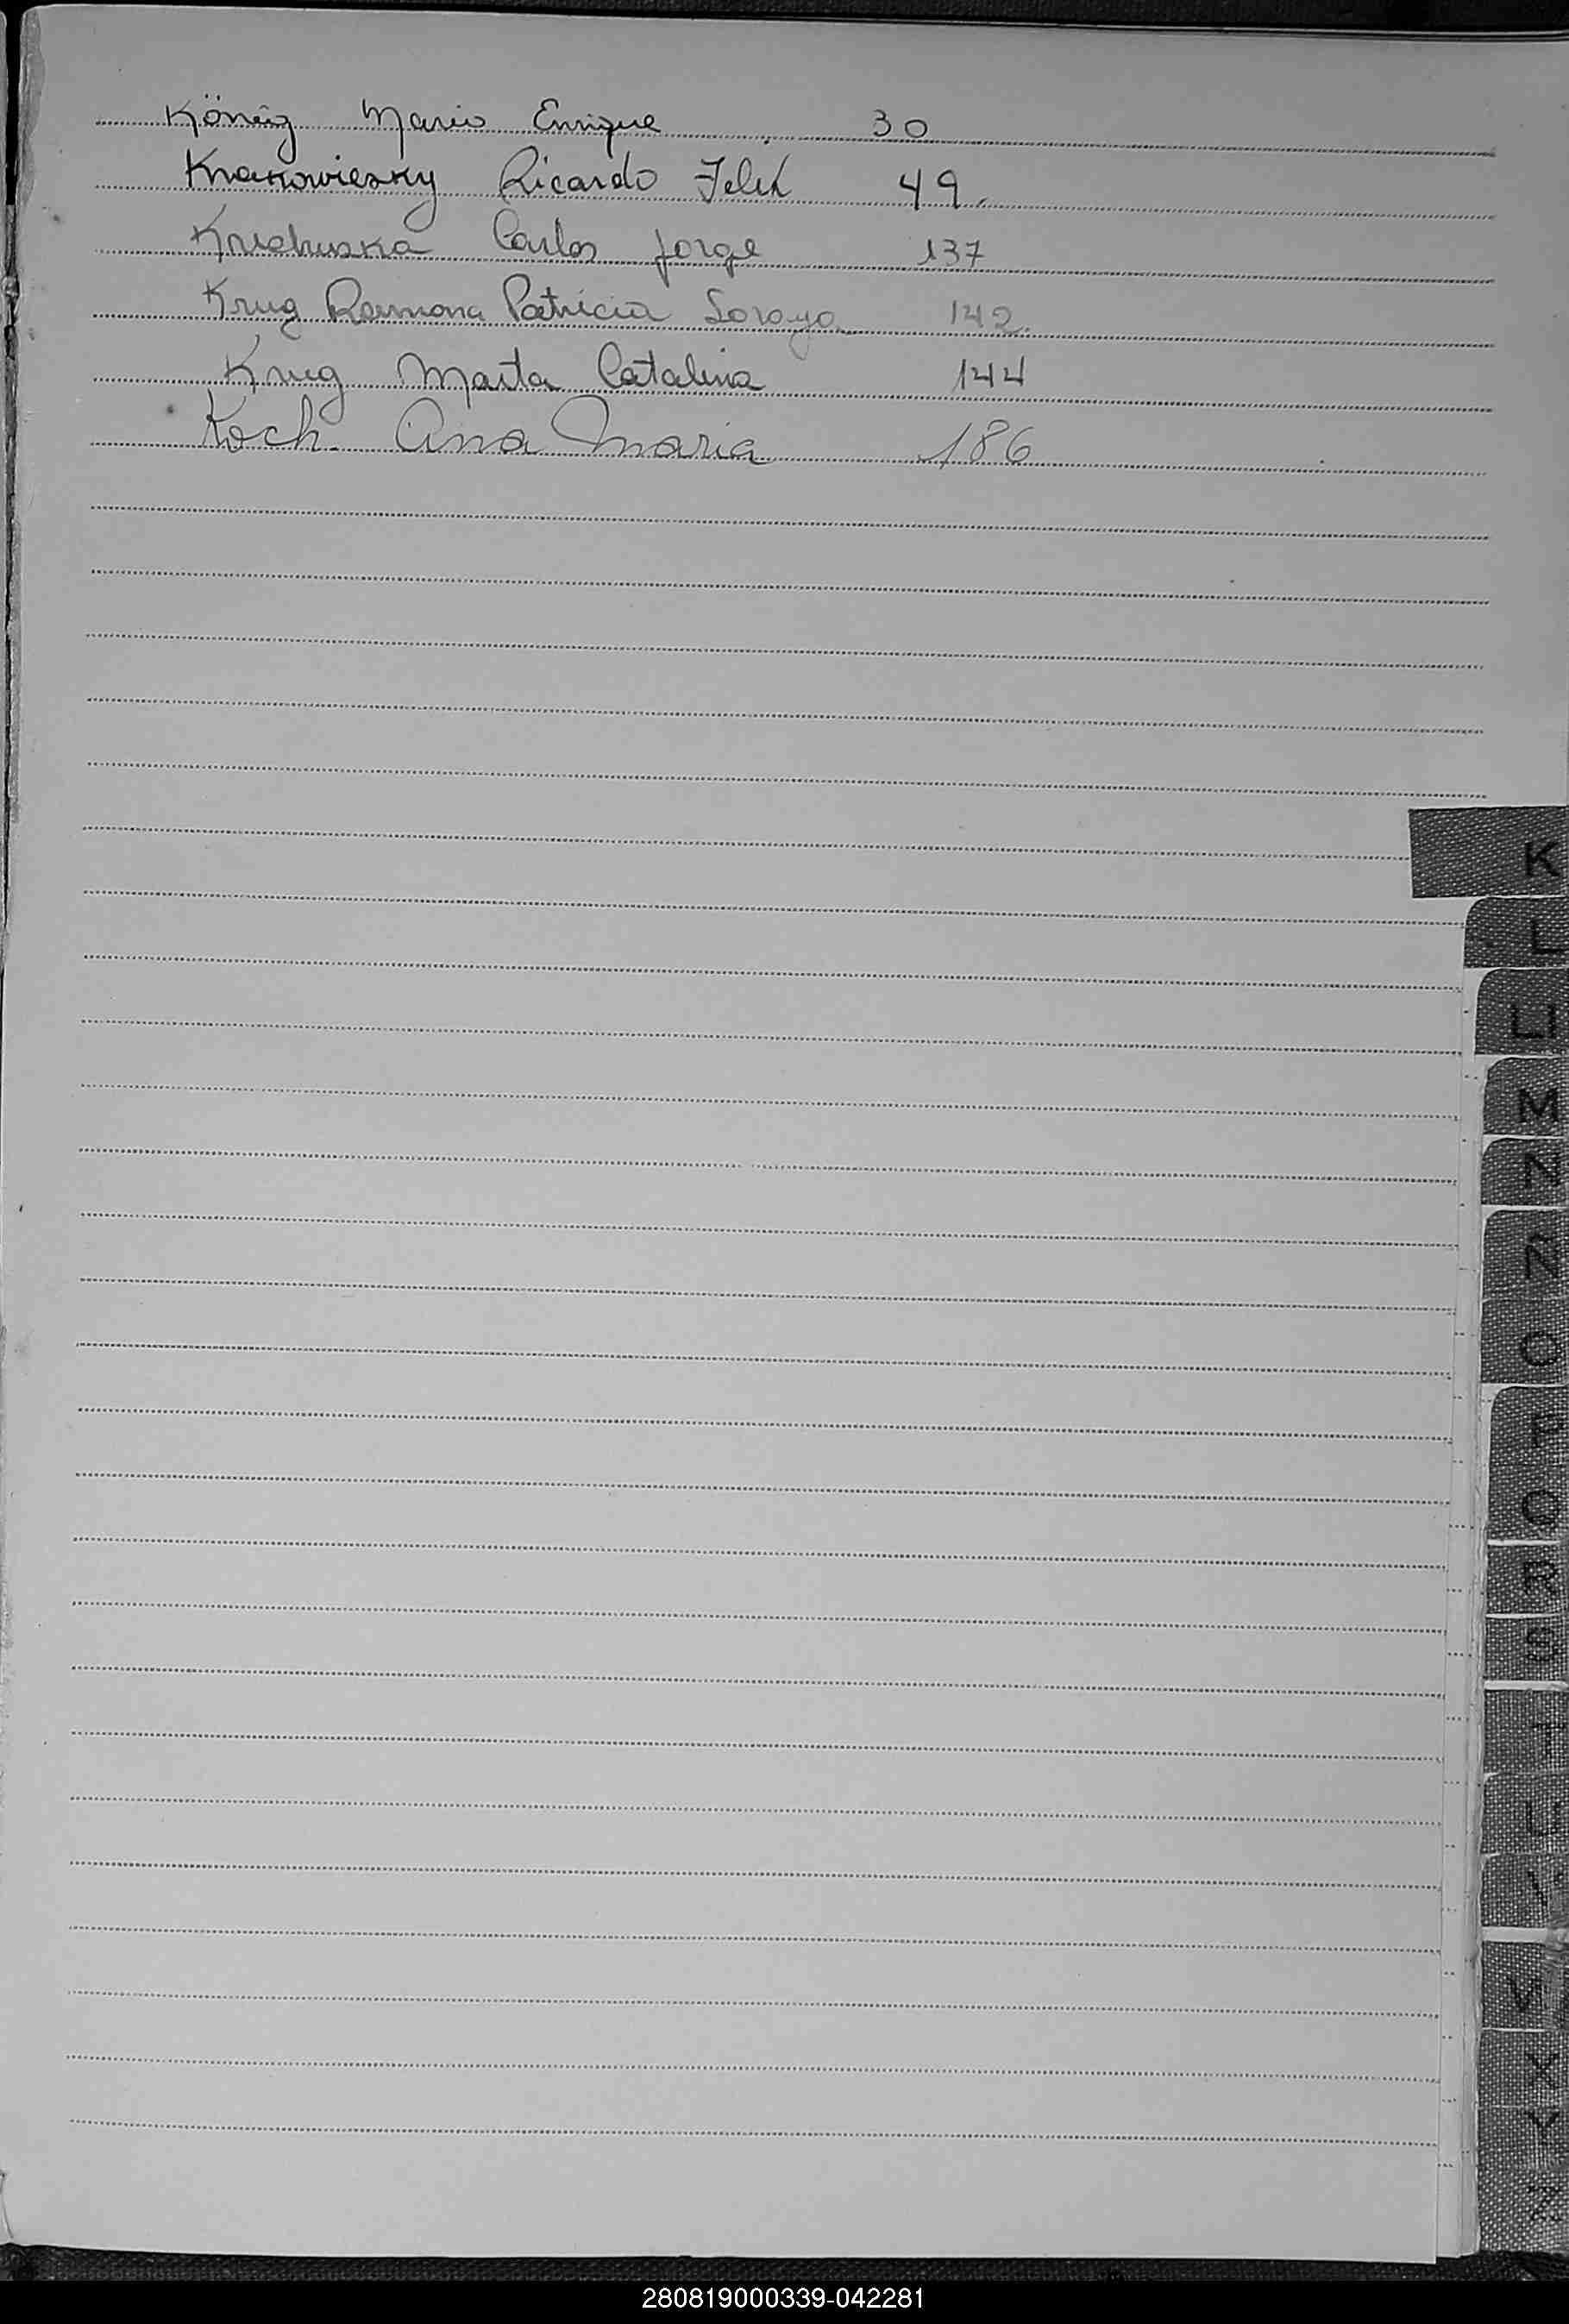 König Mario Enrique 30
Krakowiesky Ricardo Felix 49.
Carlos Jorge 137
Krug Ramona Patricia Soraya 142.
Krug Marta Catalina 144
Koch Ana Maria 186
K
L
LL
M
N
Ñ
O
P
Q
R
S
T
U
V
W
X
Y
Z
280819000339-042281